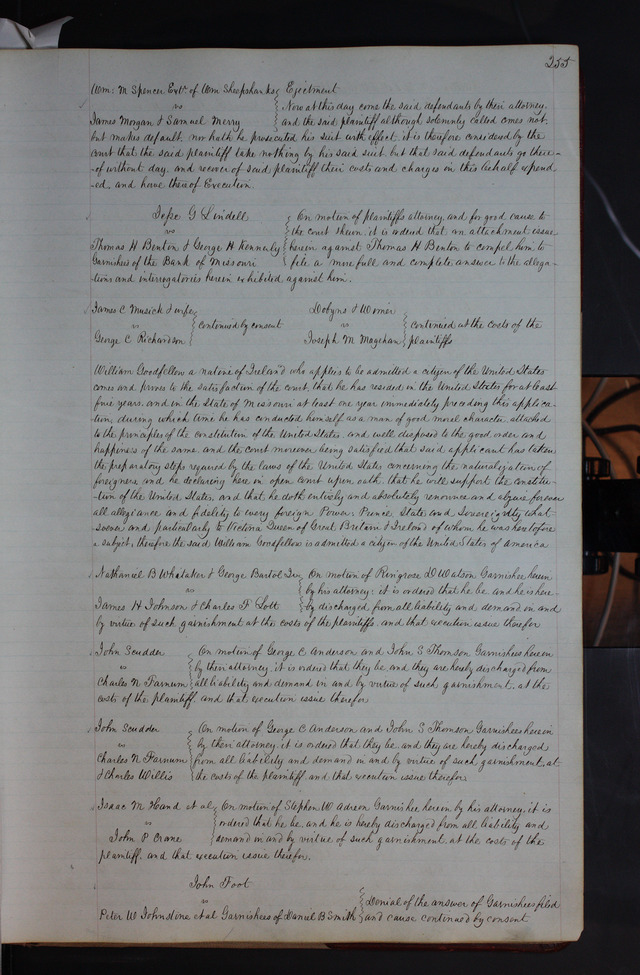 255
Wm: M Spencer Extr. of Wm Sheepshanks } Ejectment
vs } Now at this day come the said defendants by their attorney.
James Morgan & Samuel Merry } and the said plaintiff although solemnly called comes not,
but makes default, nor hath he prosecuted his suit with effect; it is therefore considered by the
court that the said plaintiff take nothing by his said suit, but that said defendants go there-
-of without day, and recover of said plaintiff their costs and charges in this behalf expend
-ed, and have thereof Execution.
Jesse G Lindell } On motion of plaintiffs attorney, and for good cause to
vs } the court shewn, it is ordered that an attachment issue
Thomas H Benton & George H Kennerly } herein against Thomas H Benton to compel him to
Garnishees of the Bank of Missouri } file a more full and complete answer to the allega-
-tions and interrogatories herein exhibited against him.
James C Musick & wife } Dobyns & Womer }
vs } continued by consent vs } continued at the costs of the
George C Richardson } Joseph M Magehan } plaintiffs
William Goodfellow a native of Ireland who applies to be admitted a citizen of the United States
comes and proves to the satisfaction of the court, that he has resided in the United States for at least
five years, and in the State of Missouri at least one year immediately preceding this applica-
tion, during which time he has conducted himself as a man of good moral character attached
to the principles of the constitution of the United States, and well disposed to the good order and
happiness of the same, and the court moreover being satisfied that said applicant has taken
the preparatory steps required by the laws of the United States concerning the naturalization of
foreigners and he declaring here in open court upon oath, that he will support the constitu-
-tion of the United States, and that he doth entirely and absolutely renounce and abjure forever
all allegiance and fidelity to every foreign Power, Prince State and Sovereignty what
soever and particularly to Victoria Queen of Great Britain & Ireland of whom he was heretofore
a subject, therefore the said William Goodfellow is admitted a citizen of the United States of America
Nathaniel B Whitaker & George Bartol Jr } On motion of Ringrose D Watson Garnishee herein
vs } by his attorney: it is ordered that he be and he is here-
James H Johnson & Charles F Lott } by discharged from all liability and demand in and
by virtue of such garnishment at the costs of the plaintiffs, and that execution issue therefor
John Scudder } On motion of George C Anderson and John S Thomson Garnishees herein
vs } by their attorney, it is ordered that they be and they are hereby discharged from
Charles N Parnum } all liability and demand in and by virtue of such garnishment, at the
costs of the plaintiff, and that execution issue therefor
John Scudder } On motion of George C Anderson and John S Thomson Garnishees herein
vs } by their attorney, it is ordered that they be and they are hereby discharged
Charles N Parnum } from all liability and demand in and by virtue of such garnishment, at
& Charles Willis } the costs of the plaintiff, and that execution issue therefor
Isaac M Hand et al } On motion of Stephen W Adreon Garnishee herein by his attorney, it is
vs } ordered that he be and he is hereby discharged from all liability and
John P Crane } demand in and by virtue of such garnishment, at the costs of the
plaintiff, and that execution issue therefor.
John Foot
vs } Denial of the answer of Garnishees filed
Peter W Johnstone et al Garnishees of Daniel B Smith } and cause continued by consent